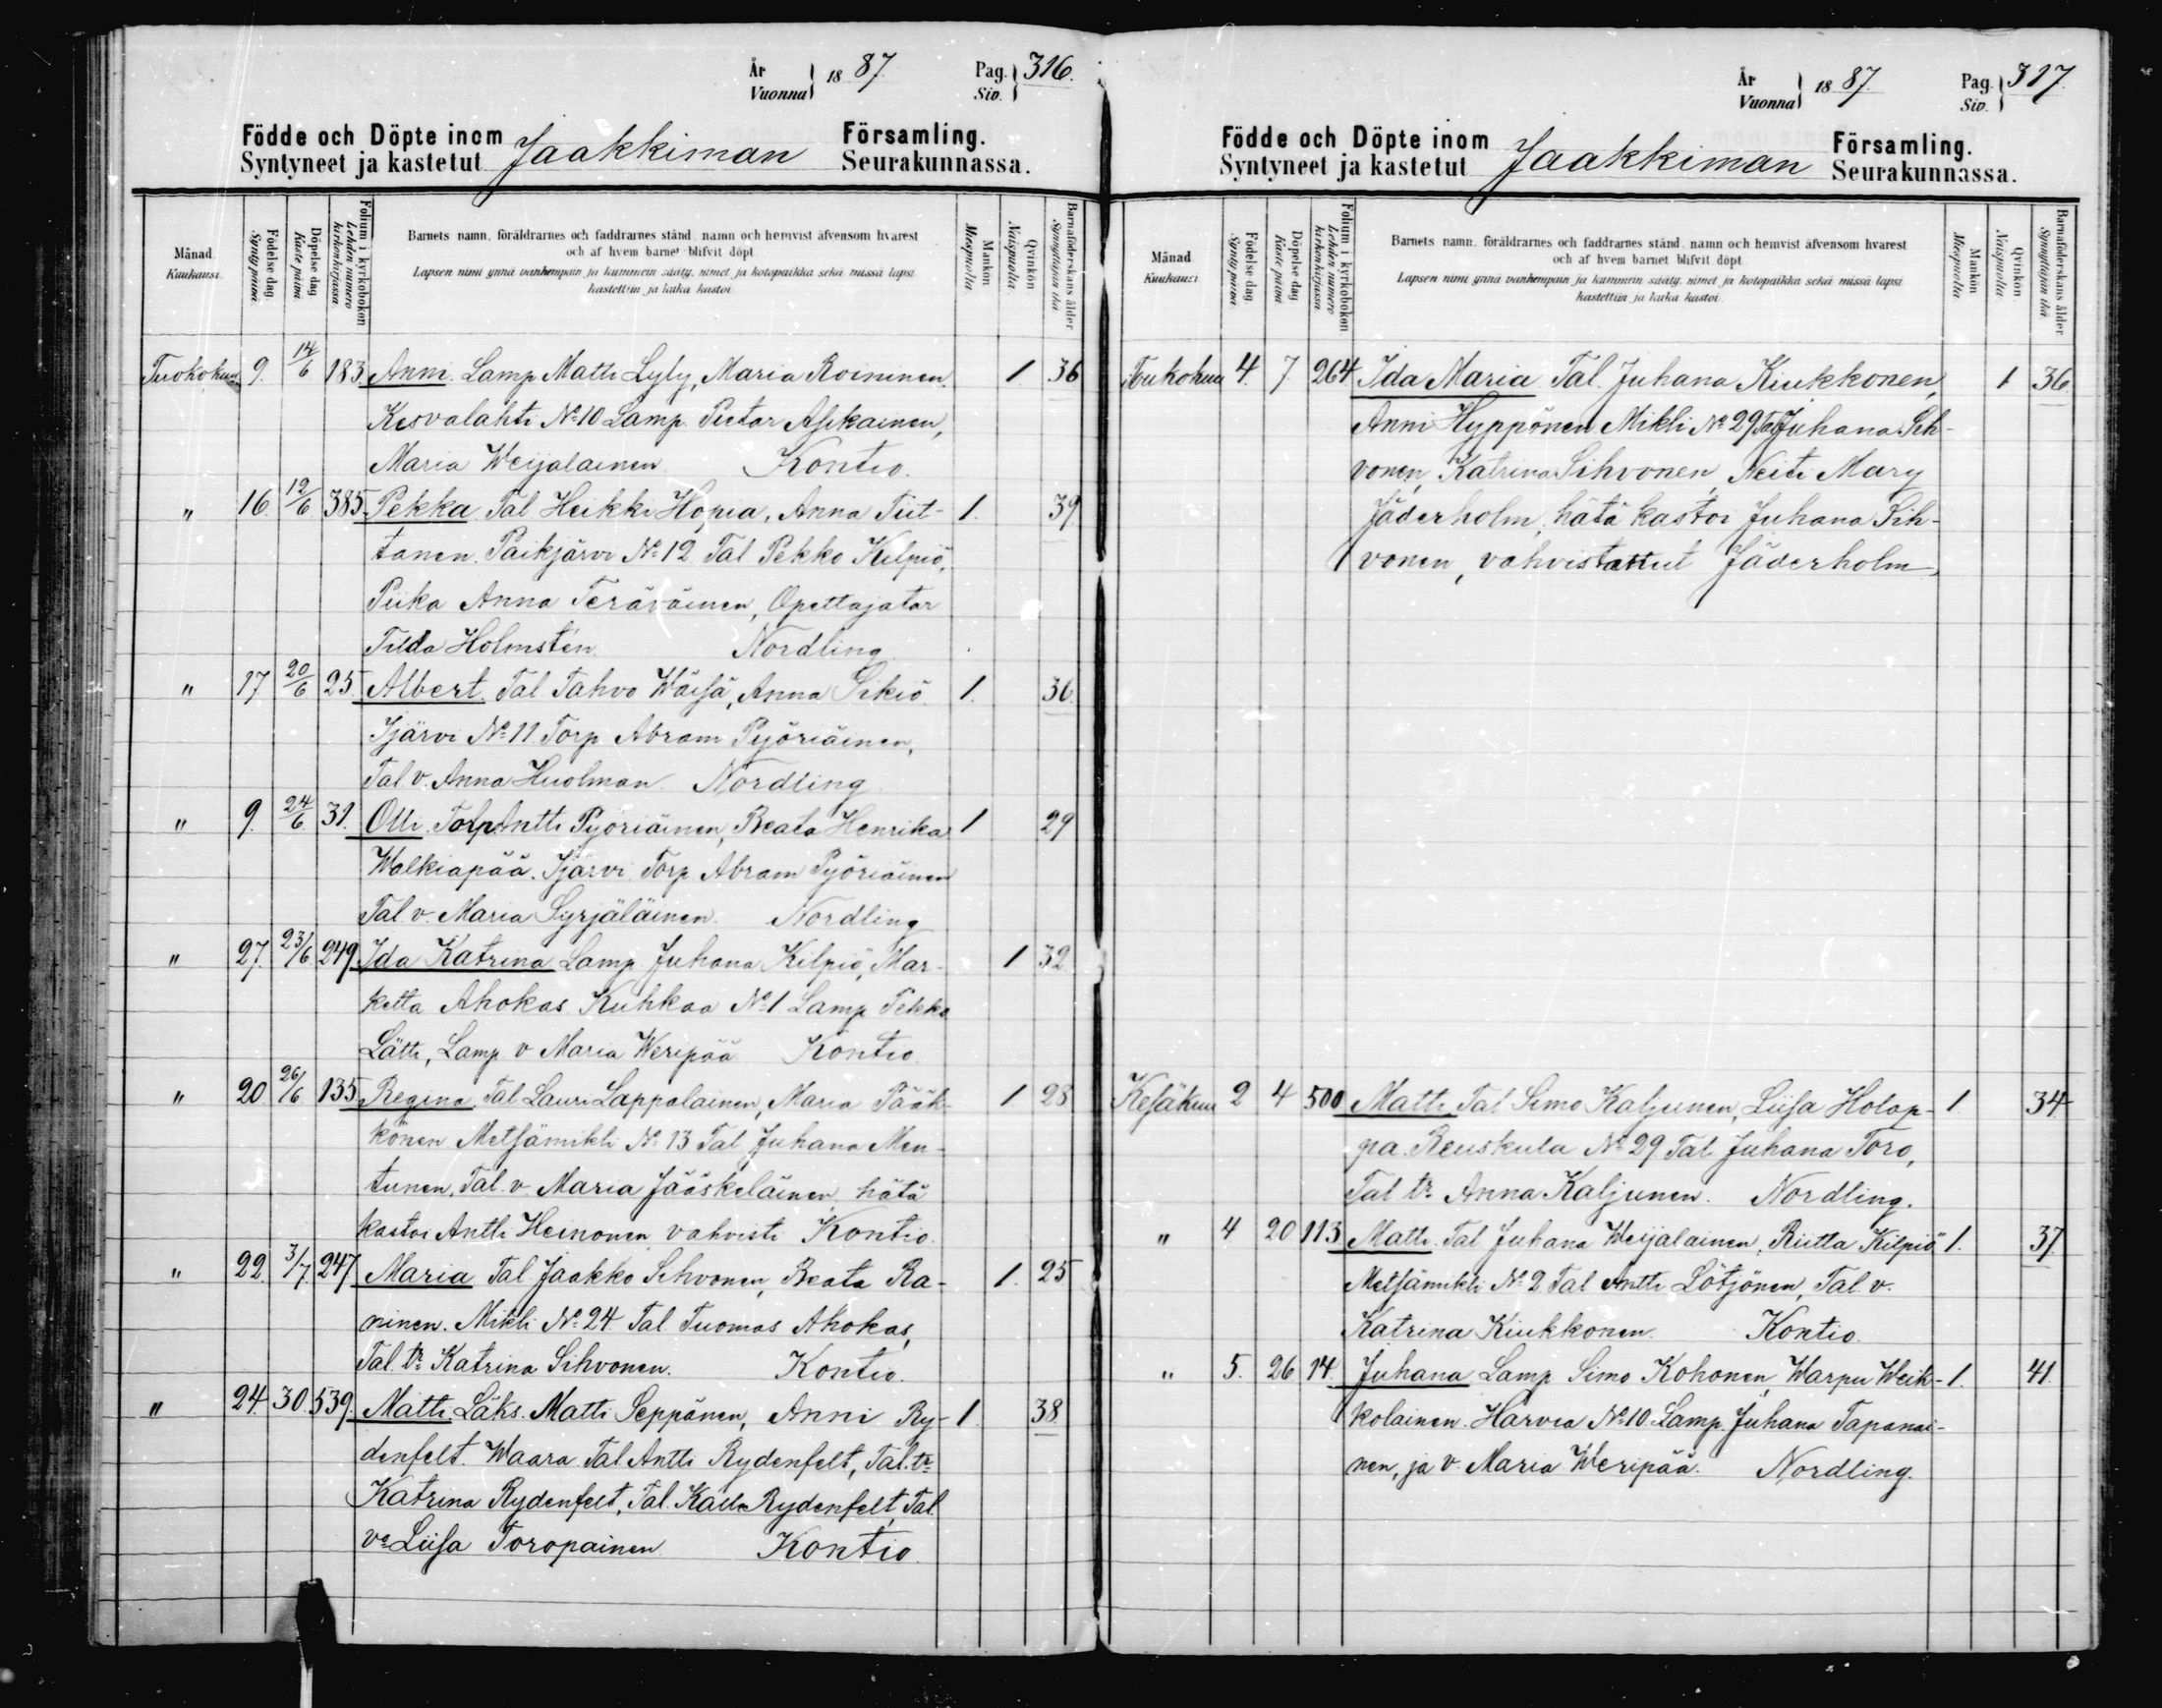 År
Vuonna } 18 87.
Pag.
Siv. } 316.
Födde och Döpte inom
Syntyneet ja kastetut Jaakkiman Församling.
Seurakunnassa.
Månad
Kuukausi.
Födelse dag
Synty päivä.
Döpelse dag
Kaste päivä.
Folium i kyrkoboken
Lehden numero
kirkonkirjassa.
Barnets namn, föräldrarnes och faddrarnes stånd, namn och hemvist äfvensom hvarest
och af hvem barnet blifvit döpt
Lapsen nimi ynnä vanhempain ja kummein sääty, nimet ja kotopaikka sekä missä lapsi
kastettiin ja kuka kastoi.
Mankön
Miespuolta
Qvinkön
Naispuolta
Barnaföderskans ålder
Synnyttäjän ikä
Tuokokuu 9. 14/6 183. Anni. Lamp Matti Lyly, Maria Roininen. 1 36
Kesvalahti No 10 Lamp. Pietar Asikainen,
Maria Weijalainen Kontio.
" 16. 12/6 385. Pekka. Tal Heikki Hopia, Anna Tiit- 1. 39
tanen. Paikjärvi No 12 Tal Pekko Kilpiö,
Piika Anna Teräväinen, Opettajatar
Tilda Holmstén. Nordling
" 17 20/6 25. Albert. Tal Tahvo Wäisä, Anna Sikiö. 1. 36.
Ijärvi No 11. Torp Abram Pyöriäinen,
Tal v. Anna Huolman. Nordling.
" 9. 24/6 31. Olli. Torp Antti Pyöriäinen, Beata Henrika 1 29
Walkiapää. Ijärvi. Torp Abram Pyöriäinen
Tal v. Maria Syrjäläinen. Nordling
" 27. 23/6 249. Ida Katrina Lamp Juhana Kilpiö, Mar- 1 32
ketta Ahokas Kuhkaa No 1 Lamp Pekko
Lätti, Lamp v Maria Weripää Kontio.
" 20 26/6 135. Regina. Tal Lauri Lappalainen, Maria Pääk- 1 28
könen. Metsämikli No 13 Tal Juhana Men-
tunen, Tal. v. Maria Jääskeläinen, hätä
kastoi Antti Heinonen, vahvisti Kontio.
" 22. 3/7 247 Maria Tal Jaakko Sihvonen, Beata Ra- 1. 25
ninen. Mikli No 24 Tal Tuomas Ahokas,
Tal. tr Katrina Sihvonen. Kontio.
" 24. 30. 539. Matti. Läks. Matti Seppönen, Anni Ry- 1. 38
denfelt. Waara Tal Antti Rydenfelt, Tal. tr
Katrina Rydenfelt, Tal. Kalle Rydenfelt, Tal.
va Liisa Toropainen Kontio.
År
Vuonna } 18 87.
Pag.
Siv. } 317.
Födde och Döpte inom
Syntyneet ja kastetut Jaakkiman Församling.
Seurakunnassa.
Månad
Kuukausi
Födelse dag
Synty päivä.
Döpelse dag
Kaste päivä.
Folium i kyrkoboken
Lehden numero
kirkonkirjassa
Barnets namn, föräldrarnes och faddrarnes stånd, namn och hemvist äfvensom hvarest
och af hvem barnet blifvit döpt.
Lapsen nimi ynnä vanhempain ja kummein sääty, nimet ja kotopaikka sekä missä lapsi
kastettiin ja kuka kastoi.
Mankön
Miespuolta
Qvinkön
Naispuolta
Barnaföderskans ålder
Synnyttäjän ikä
Toukokuu 4. 7. 264 Ida Maria Tal. Juhana Kiukkonen, 1 36
Anni Hyppönen Mikli No 29 Tal Juhana Sih-
vonen, Katrina Sihvonen, Neiti Mary
Jäderholm, hätä kastoi Juhana Sih-
vonen, vahvistanut Jäderholm,
Kesäkuu 2 4 500 Matti. Tal Simo Kaljunen, Liisa Holop- 1 34
pa. Reuskula No 29 Tal Juhana Toro,
Tal tr Anna Kaljunen. Nordling.
" 4 20 113 Matti. Tal Juhana Weijalainen, Riitta Kilpiö 1. 37
Metsämikli No 2 Tal Antti Lötjönen, Tal. v.
Katrina Kiukkonen. Kontio.
" 5. 26 14. Juhana Lamp Simo Kohonen, Warpu Weik- 1. 41.
kolainen. Harvia No 10 Lamp. Juhana Tapanai-
nen, ja v. Maria Weripää. Nordling.